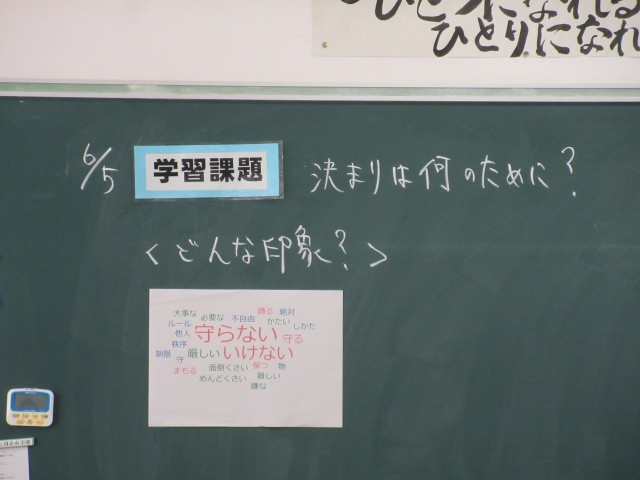 ひとつになれる
ひとりになれ
6/5 学習課題 決まりは何のために?
<どんな印象?>
縛る 絶対
大事な 必要な 不自由 かたい
ルール 守らない しかた
他人 守る
秩序
制限 守 厳しい いけない
面倒くさい 保つ 物
まもる めんどくさい 難しい
嫌な